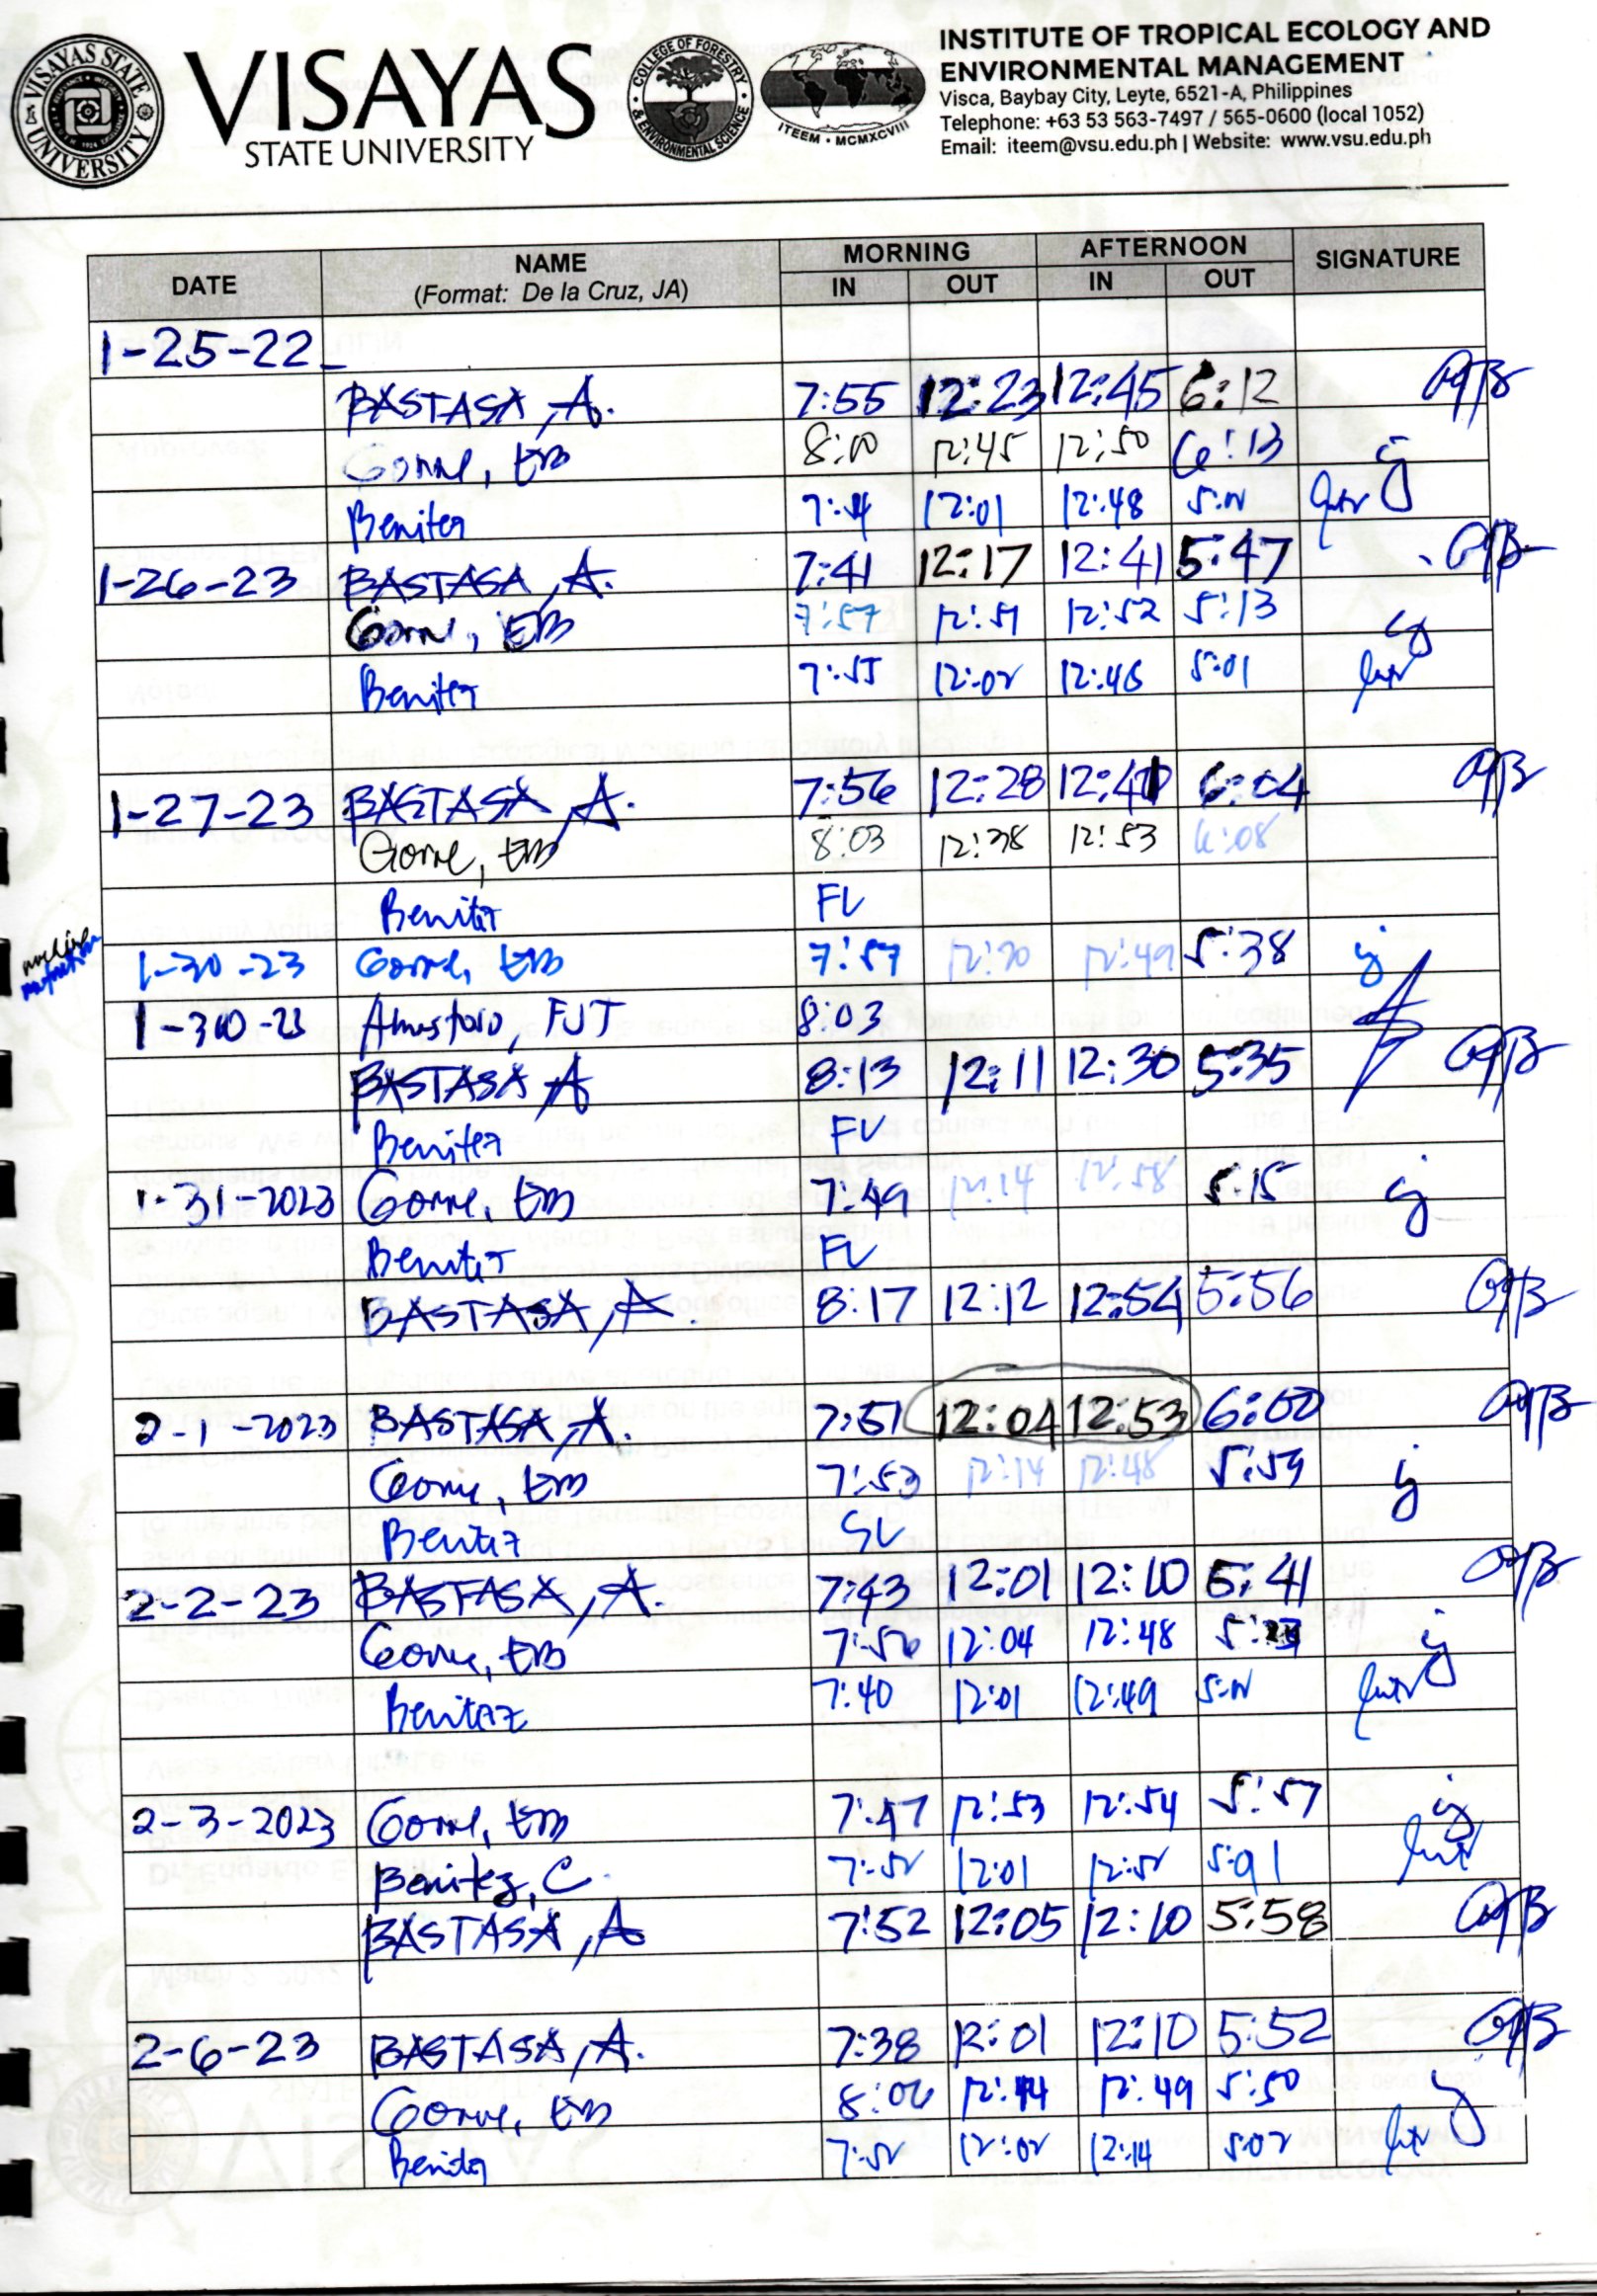 VISAYAS STATE UNIVERSITY
VISAYAS
STATE UNIVERSITY
COLLEGE OF FORESTRY & ENVIRONMENTAL SCIENCE
ITEEM • MCMXCVIII
INSTITUTE OF TROPICAL ECOLOGY AND
ENVIRONMENTAL MANAGEMENT
Visca, Baybay City, Leyte, 6521-A, Philippines
Telephone: +63 53 563-7497 / 565-0600 (local 1052)
Email: iteem@vsu.edu.ph | Website: www.vsu.edu.ph
DATE NAME MORNING AFTERNOON SIGNATURE
(Format: De la Cruz, JA) IN OUT IN OUT
1-25-22
BASTASA, A. 7:55 12:23 12:45 6:12
Gorne, EB 8:00 12:45 12:50 6:13
Benitez 12:01 12:48
1-26-23 BASTASA, A. 7:41 12:17 12:41 5:47
Gorne, EB 7:57 12:51 12:52 5:13
Benitez 7:55 12:02 12:46 5:01
1-27-23 BASTASA, A. 7:56 12:28 6:04
Gorne, EB 8:03 12:38 12:53 6:08
Benitez FL
1-30-23 Gorne, EB 7:57 12:20 12:49 5:38
1-30-23 FJT 8:03
BASTASA A 8:13 12:11 12:30 5:35
Benitez FL
1-31-2023 Gorne, EB 7:49 12:14 12:58 5:15
Benitez FL
BASTASA, A. 8:17 12:12 12:54 5:56
2-1-2023 BASTASA, A. 7:51 12:04 12:53 6:00
Gorne, EB 7:53 12:14 12:48 5:59
Benitez SL
2-2-23 BASTASA, A. 7:43 12:01 12:10 5:41
Gorne, EB 7:56 12:04 12:48
Benitez 7:40 12:01 12:49
2-3-2023 Gorne, EB 7:47 12:53 12:54 5:57
Benitez, C. 7:52 12:01 12:52
BASTASA, A 7:52 12:05 12:10 5:58
2-6-23 BASTASA, A. 7:38 12:01 12:10 5:52
Gorne, EB 8:00 12:44 12:49 5:50
Benitez 7:52 12:02 12:14 5:02